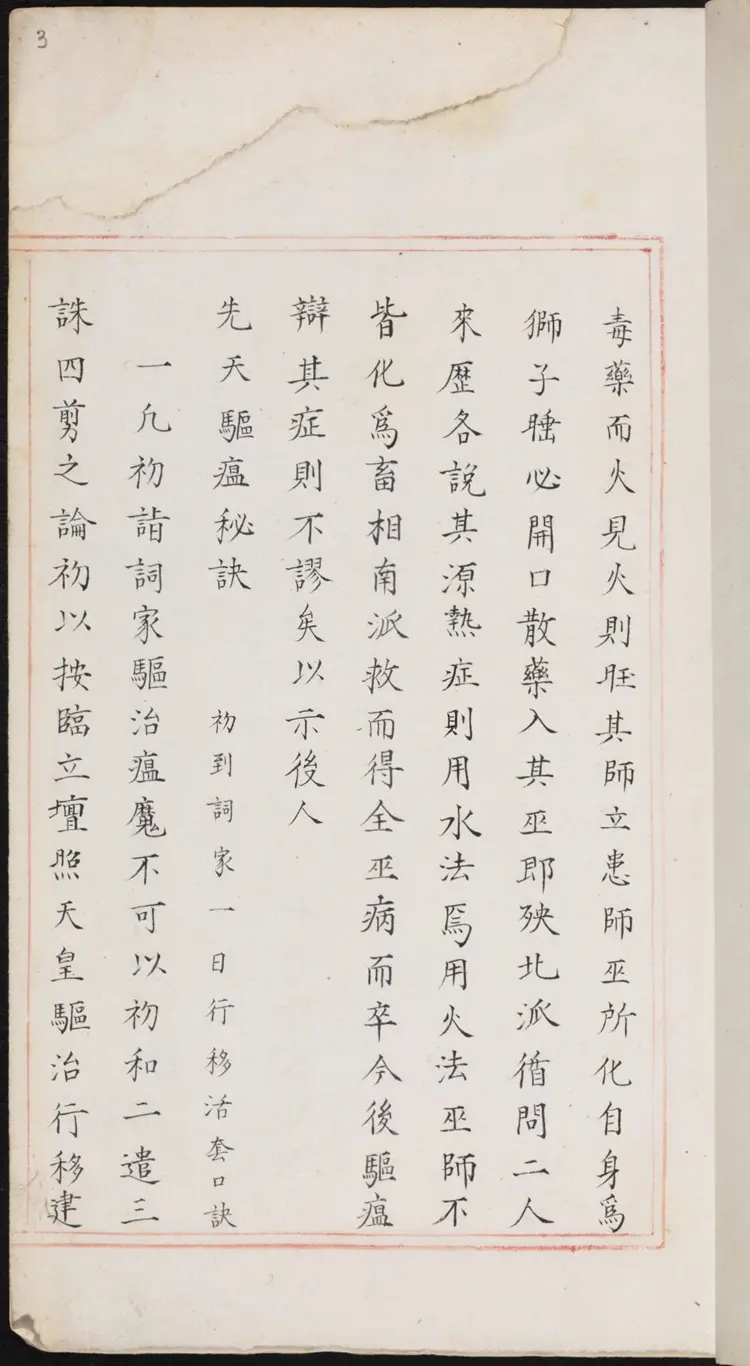 3
毒藥而火見火則旺其師立患師巫所化自身爲
獅子睡必開口散藥入其巫即殃北派循問二人
來歷各說其源熱症則用水法焉用火法巫師不
皆化爲畜相南派救而得全巫病而卒今後驅瘟
辯其症則不謬矣以示後人
先天驅瘟秘訣 初到詞家一日行移活套口訣
一凢初詣詞家驅治瘟魔不可以初和二遣三
誅四剪之論初以按臨立壇照天皇驅治行移建